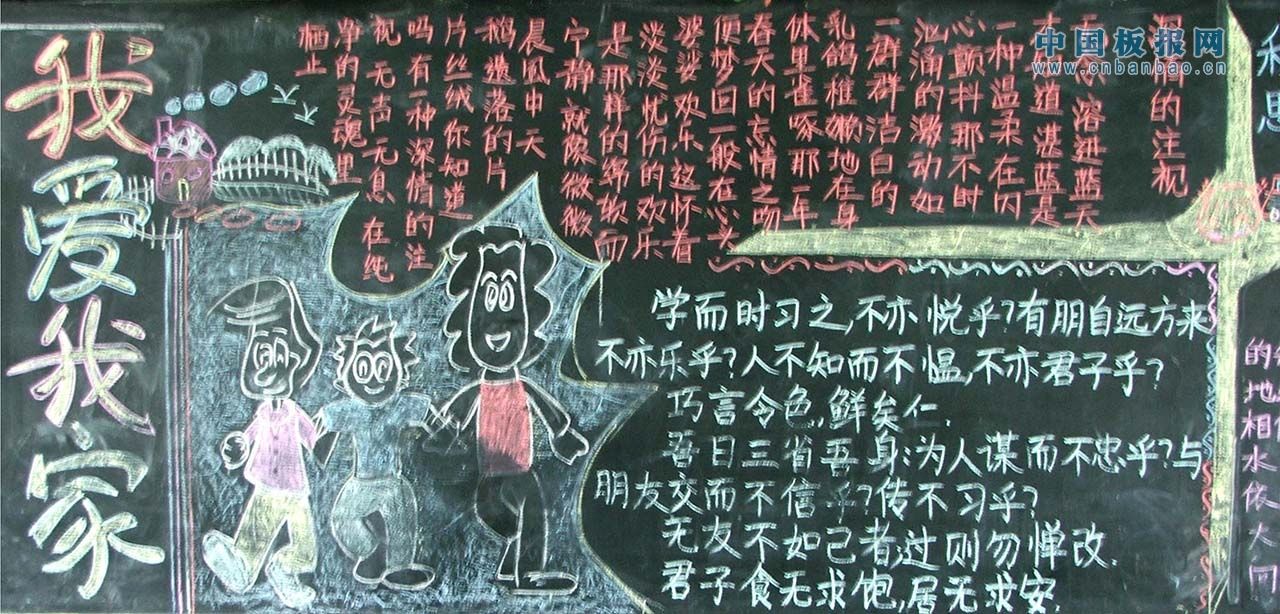 我爱我家
中国板报网
www.cnbanbao.cn
深情的注视
天天溶进蓝天
才道湛蓝是
一种温柔在内
心颤抖那不时
汹涌的激动如
一群群洁白的
乳鸽稚嫩地在身
体里雀啄那一年
春天的忘情之吻
便梦回一般在心头
婆娑欢乐这怀着
淡淡忧伤的欢乐
是那样的绵软而
宁静就像微微
晨风中天
鹅遗落的片
片丝绒你知道
吗有一种深情的注
视无声无息 在纯
净的灵魂里
栖止
学而时习之,不亦悦乎?有朋自远方来
不亦乐乎?人不知而不愠,不亦君子乎?
巧言令色,鲜矣仁.
吾日三省吾身:为人谋而不忠乎?与
朋友交而不信乎?传不习乎?
无友不如己者过则勿惮改.
君子食无求饱,居无求安.
的地相水依大同